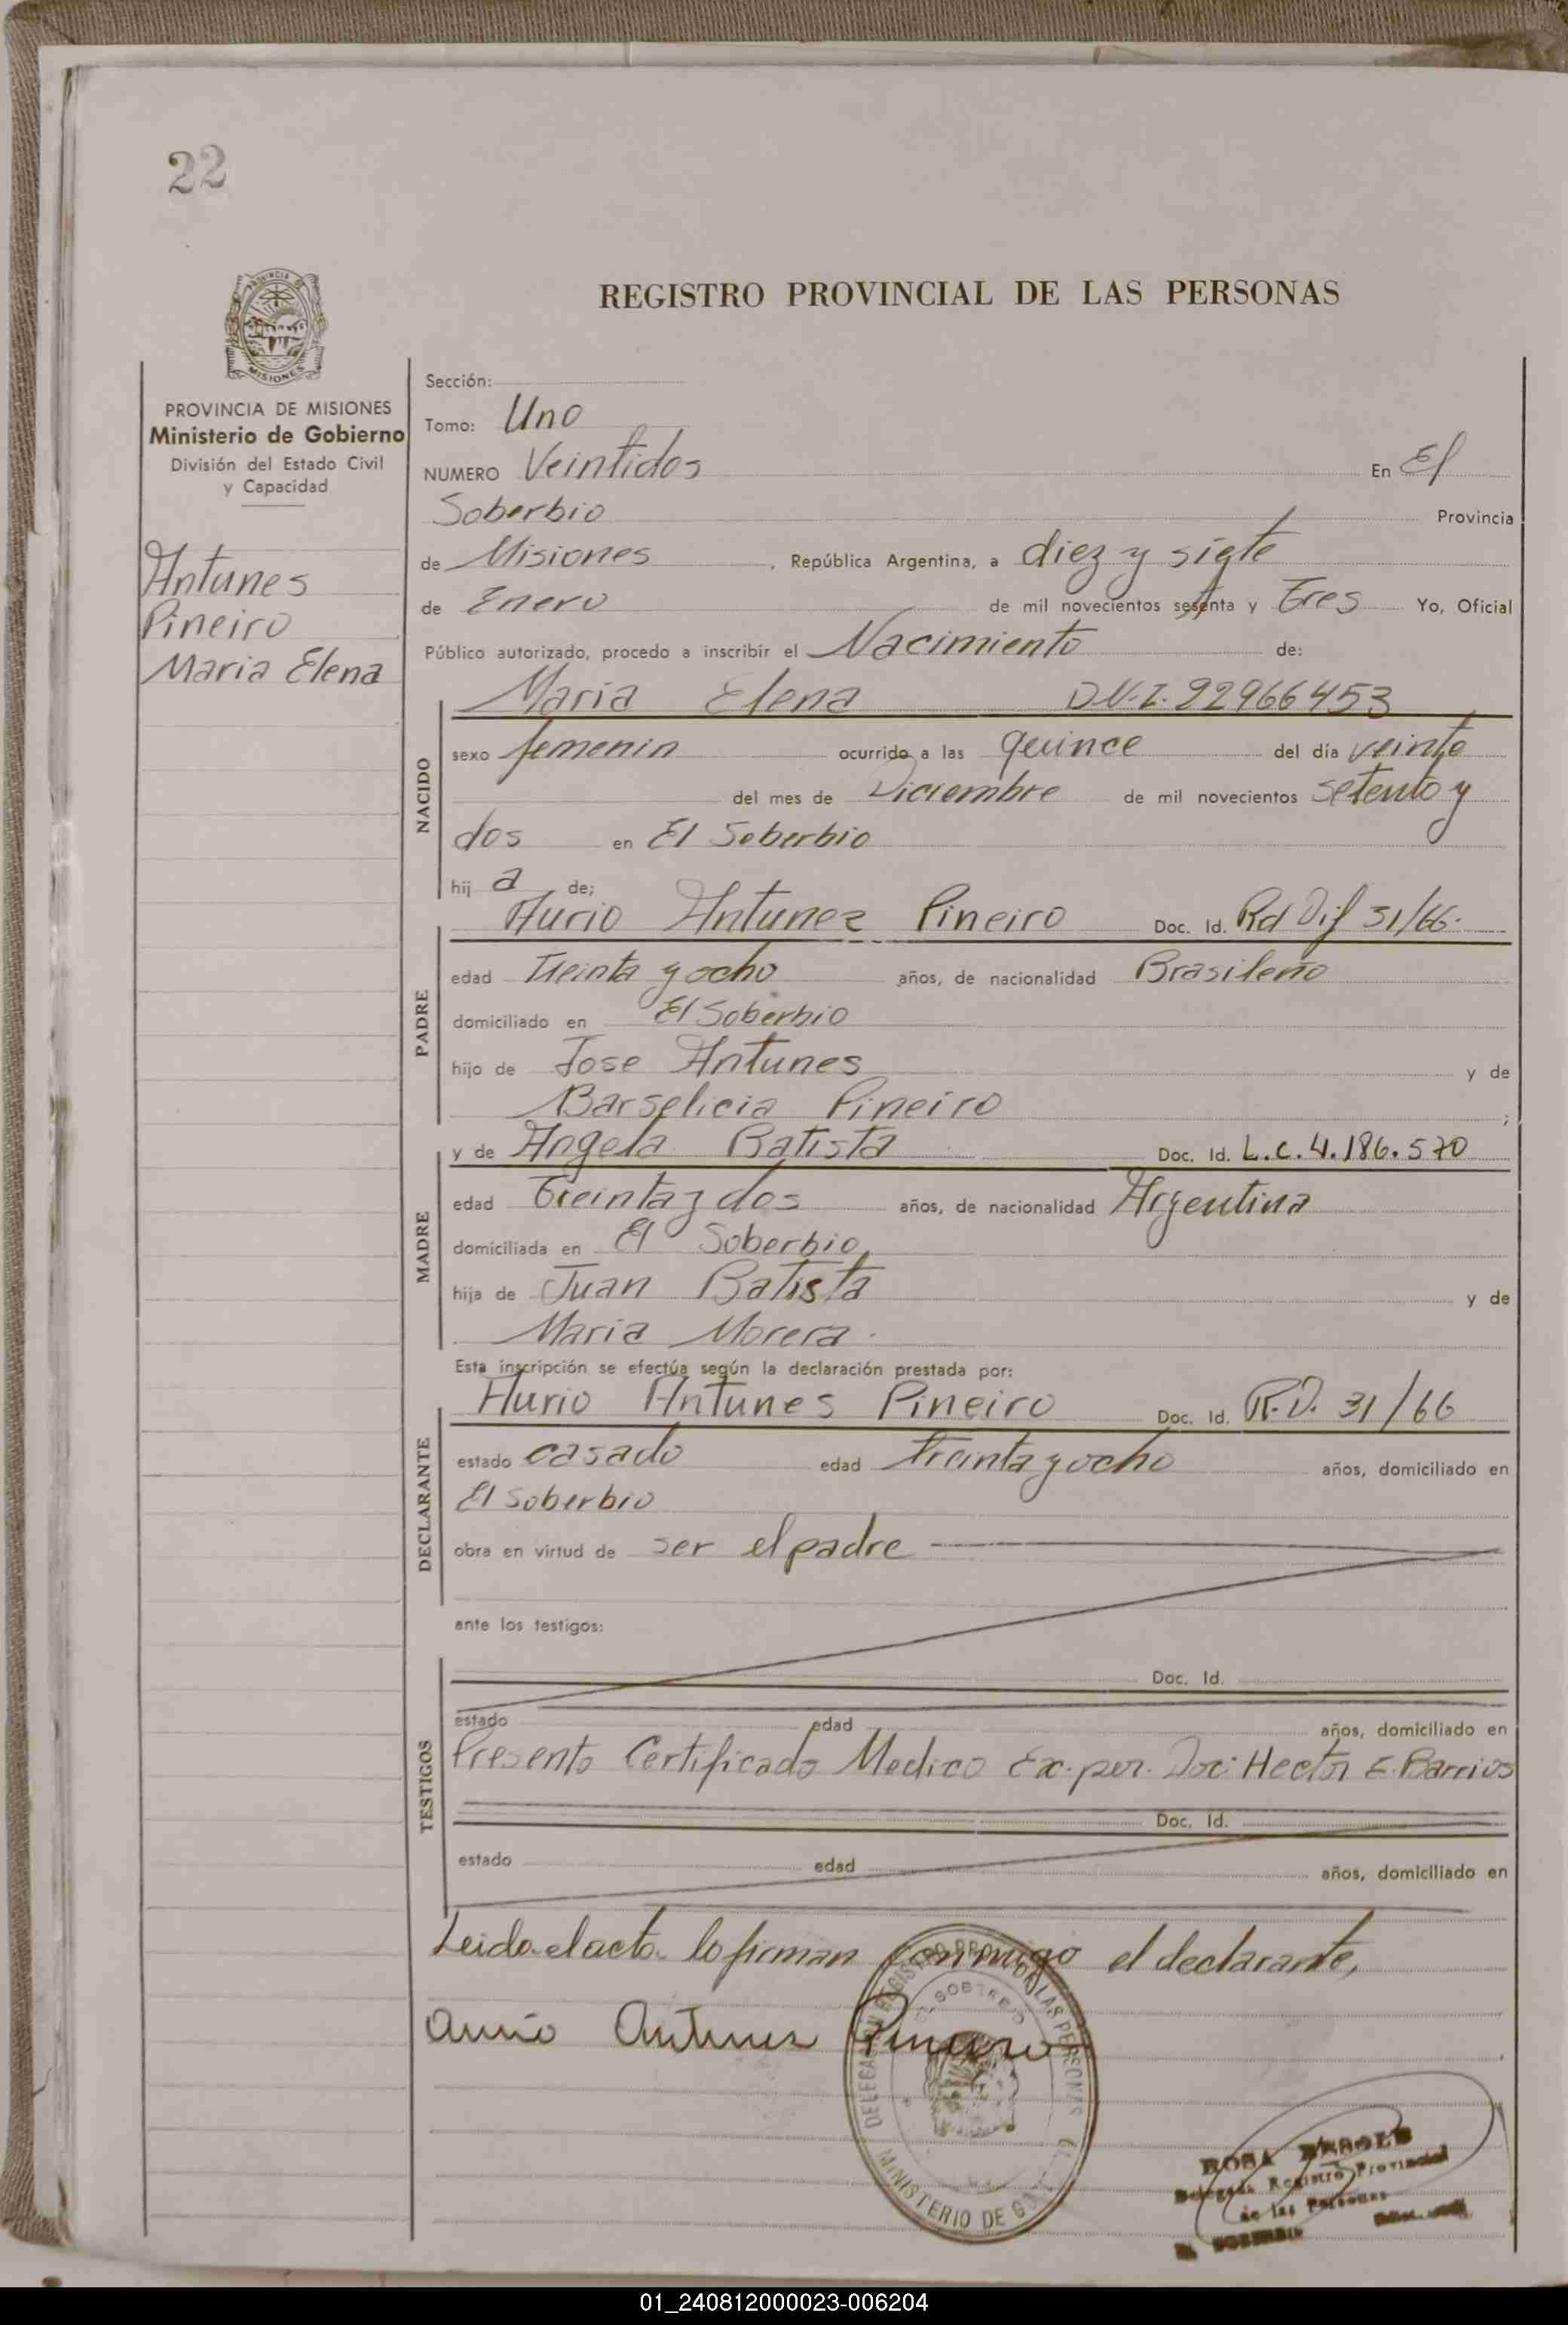 22
REGISTRO PROVINCIAL DE LAS PERSONAS
PROVINCIA
MISIONES
PROVINCIA DE MISIONES
Ministerio de Gobierno
División del Estado Civil
y Capacidad
Antunes
Pineiro
Maria Elena
Sección:
Tomo: Uno
NUMERO Veintidos En El
Soberbio Provincia
de Misiones , República Argentina, a diez y siete
de Enero de mil novecientos sesenta y Tres Yo, Oficial
Público autorizado, procedo a inscribir el Nacimiento de:
NACIDO
Maria Elena D.N.I. 92966453
sexo femenin ocurrido a las quince del día veinte
del mes de Diciembre de mil novecientos setenta y
dos en El Soberbio
hij a de;
PADRE
Aurio Antunez Pineiro Doc. Id. Rd Dif 31/66.
edad Treinta y ocho años, de nacionalidad Brasileño
domiciliado en El Soberbio
hijo de Jose Antunes y de
Barselicia Pineiro ;
MADRE
y de Angela Batista Doc. Id. L.C. 4.186.570
edad Treinta y dos años, de nacionalidad Argentina
domiciliada en El Soberbio,
hija de Juan Batista y de
Maria Morera.
Esta inscripción se efectúa según la declaración prestada por:
DECLARANTE
Aurio Antunes Pineiro Doc. Id. R.D. 31/66
estado casado edad treinta y ocho años, domiciliado en
El Soberbio
obra en virtud de ser el padre
ante los testigos:
TESTIGOS
Doc. Id.
estado edad años, domiciliado en
Presento Certificado Medico Ex. por. Doc: Hector E. Barrios
Doc. Id.
estado edad años, domiciliado en
Leido el acto lo firman conmigo el declarante,
Aurio Antunes Pineiro
DELEGACION REGISTRO PROV. DE LAS PERSONAS
MINISTERIO DE
ROSA
Delegada Registro Provincial
de las Personas
01_240812000023-006204